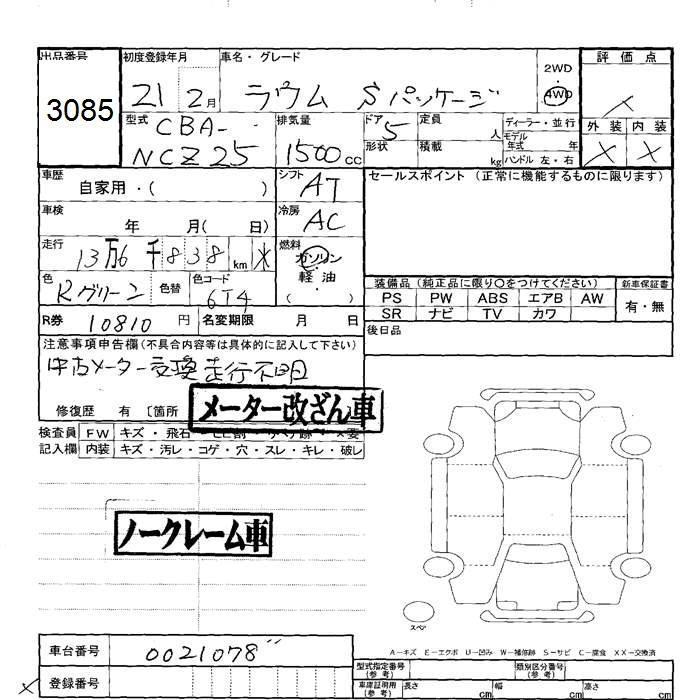 出品番号
3085
初度登録年月
21 2月
車名・グレード
ラウム Sパッケージ
2WD
・
4WD
評価点
外装 内装
X X
型式
CBA-
NCZ25
排気量
1500cc
ドア
5
形状
定員 人
積載 kg
ディーラー・並行
モデル年式 年
ハンドル 左・右
車歴
自家用・( )
車検
年 月( 日)
走行
13万6千838km
色
Rグリーン
色替
色コード
6T4
シフト
AT
冷房
AC
燃料
ガソリン
・
軽油
( )
セールスポイント(正常に機能するものに限ります)
装備品(純正品に限り○をつけてください)
PS PW ABS エアB AW
SR ナビ TV カワ
新車保証書
有・無
後日品
R券 10810 円
名変期限 月 日
注意事項申告欄(不具合内容等は具体的に記入して下さい)
中古メーター交換 走行不明
修復歴 有 〔箇所
メーター改ざん車
検査員 FW キズ・飛石
記入欄 内装 キズ・汚レ・コゲ・穴・スレ・キレ・破レ
ノークレーム車
スペア
A-キズ E-エクボ U-凹み W-補修跡 S-サビ C-腐食 XX-交換済
車台番号 0021078
登録番号
型式指定番号(参考)
類別区分番号(参考)
車庫証明用(参考)
長さ cm 幅 cm 高さ cm